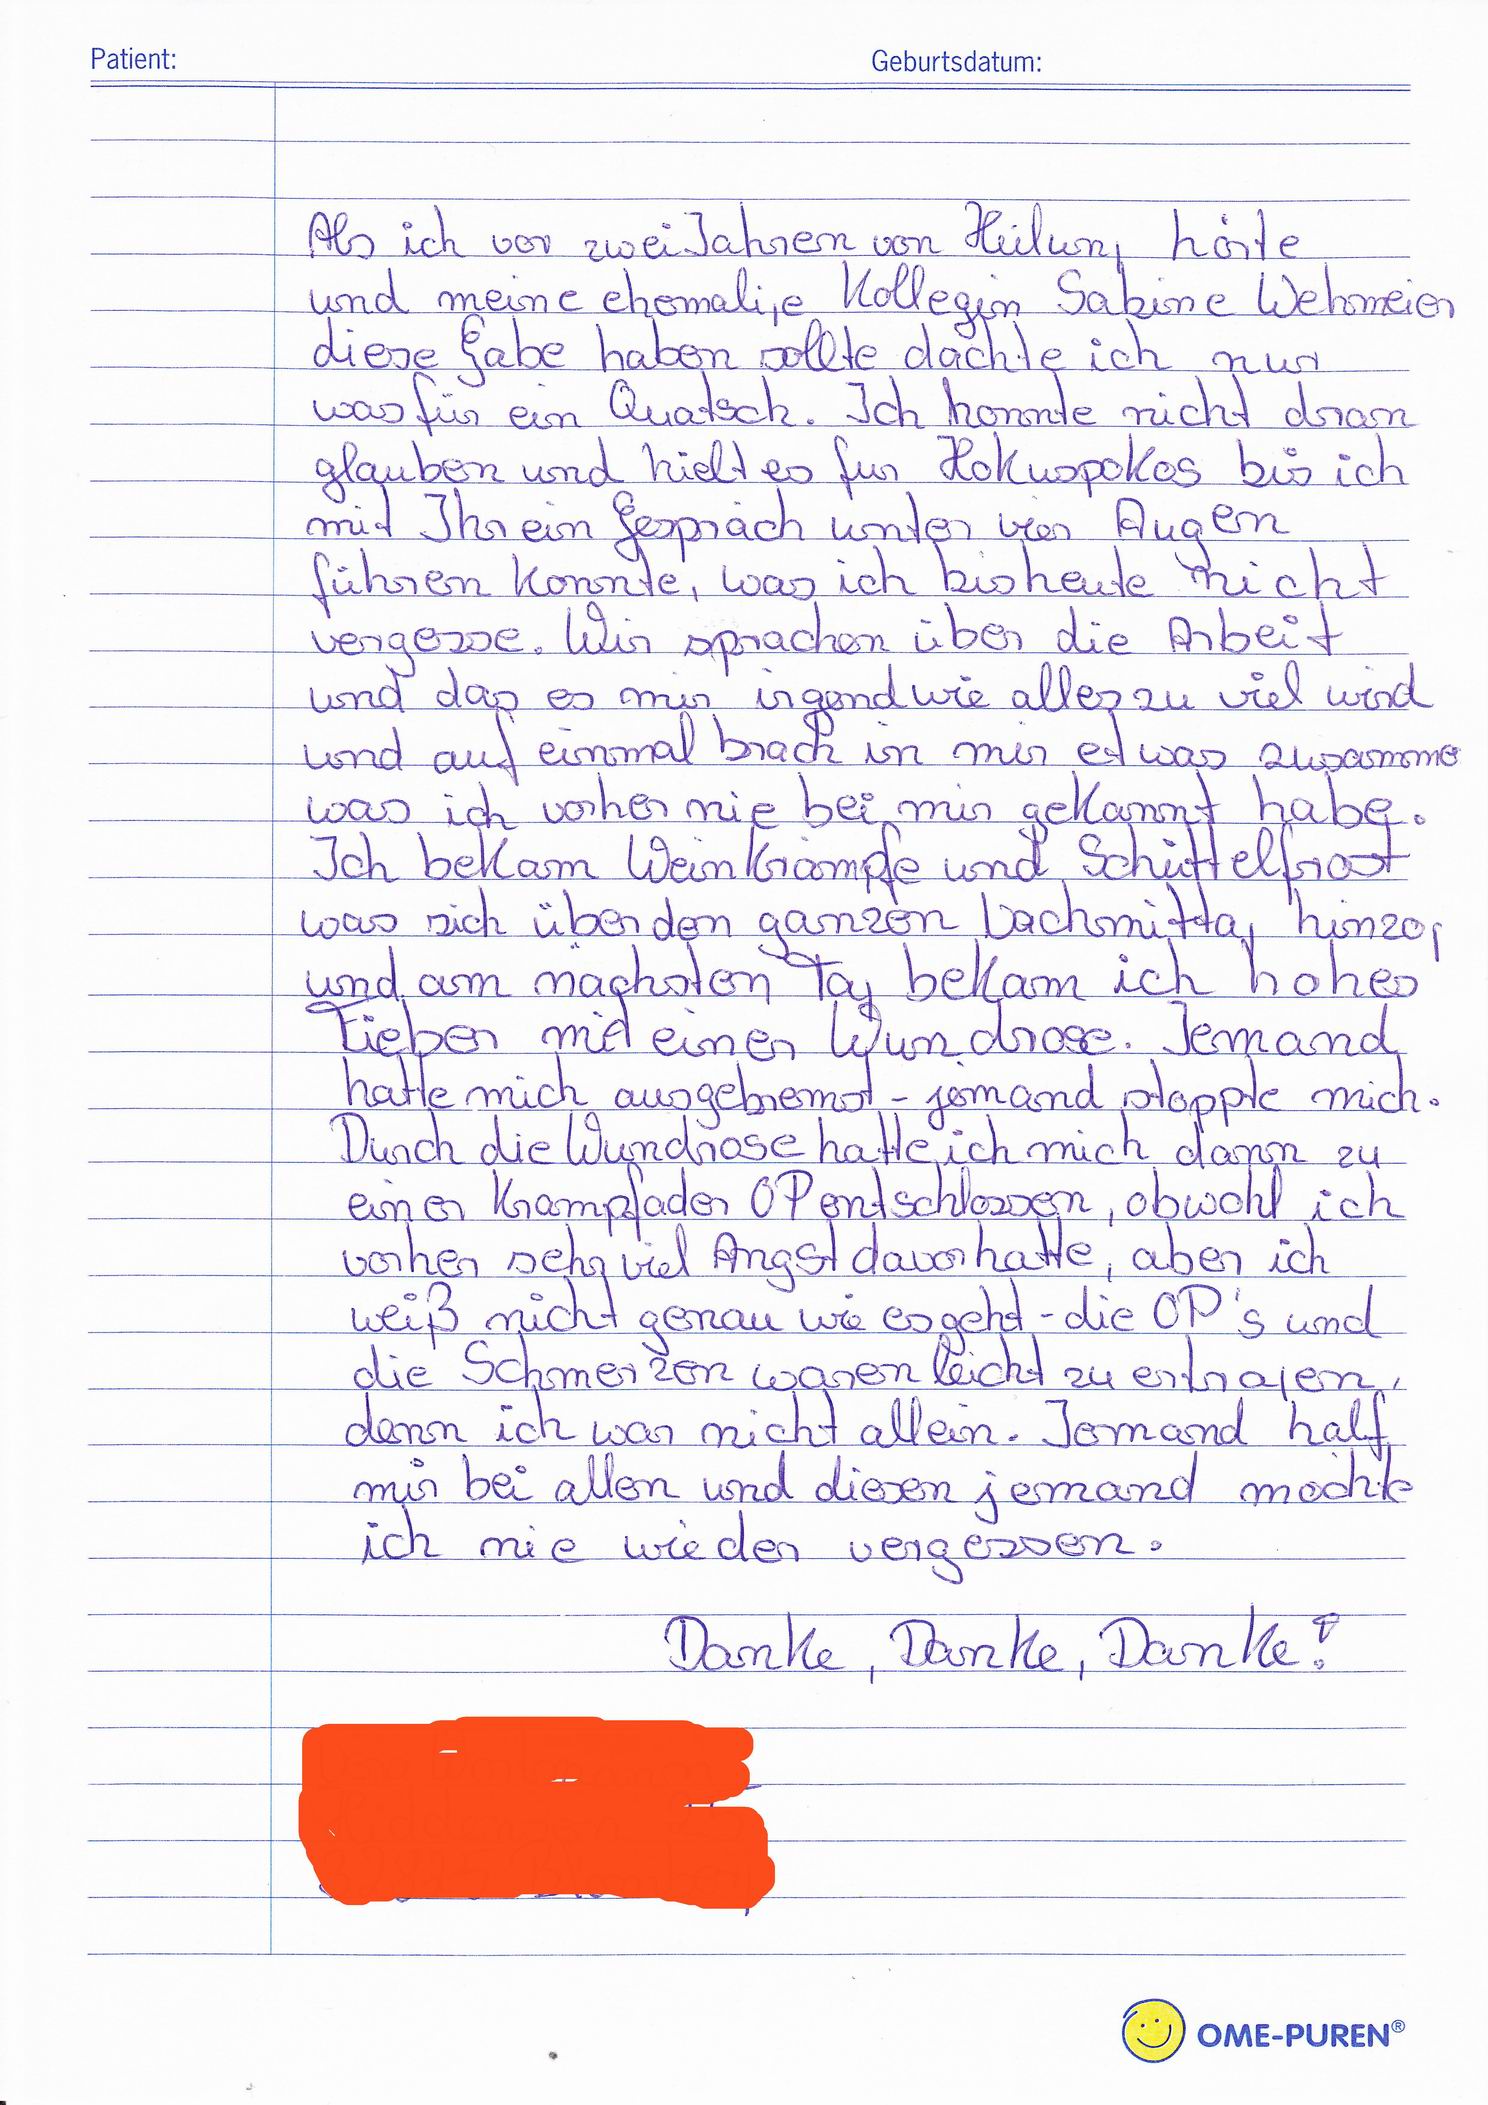 Patient: Geburtsdatum:
Als ich vor zwei Jahren von Heilung hörte
und meine ehemalige Kollegin Sabine Wehmeier
diese Gabe haben sollte dachte ich nur
was für ein Quatsch. Ich konnte nicht dran
glauben und hielt es fur Hokuspokus bis ich
mit Ihr ein Gespräch unter vier Augen
führen konnte, was ich bis heute nicht
vergesse. Wir sprachen über die Arbeit
und das es mir irgendwie alles zu viel wird
und auf einmal brach in mir etwas zusamme
was ich vorher nie bei mir gekannt habe.
Ich bekam Weinkrämpfe und Schüttelfrost
was sich über den ganzen Nachmittag hinzog
und am nächsten Tag bekam ich hohes
Fieber mit einer Wundrose. Jemand
hatte mich ausgebremst - jemand stoppte mich.
Durch die Wundrose hatte ich mich dann zu
einer Krampfader OP entschlossen, obwohl ich
vorher sehr viel Angst davor hatte, aber ich
weiß nicht genau wie es geht - die OP's und
die Schmerzen waren leicht zu ertragen,
denn ich war nicht allein. Jemand half
mir bei allen und diesen jemand möchte
ich nie wieder vergessen.
Danke, Danke, Danke!
OME-PUREN®